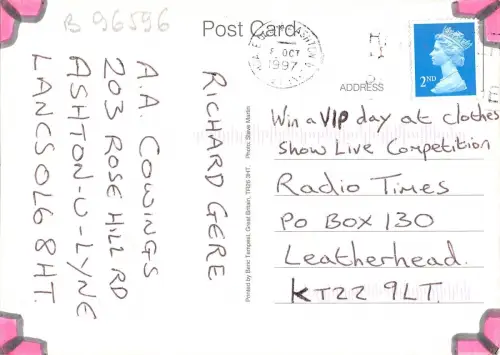 B 96596
Post Card
5 OCT
1997
ADDRESS
2ND
A.A. COWINGS
203 ROSE HILL RD
ASHTON-U-LYNE
LANCS OL6 8HT.
RICHARD GERE
Printed by Beric Tempest, Great Britain, TR26 3HT. Photo: Steve Martin
Win a VIP day at clothes
Show Live Competition
Radio Times
PO BOX 130
Leatherhead.
KT22 9LT.